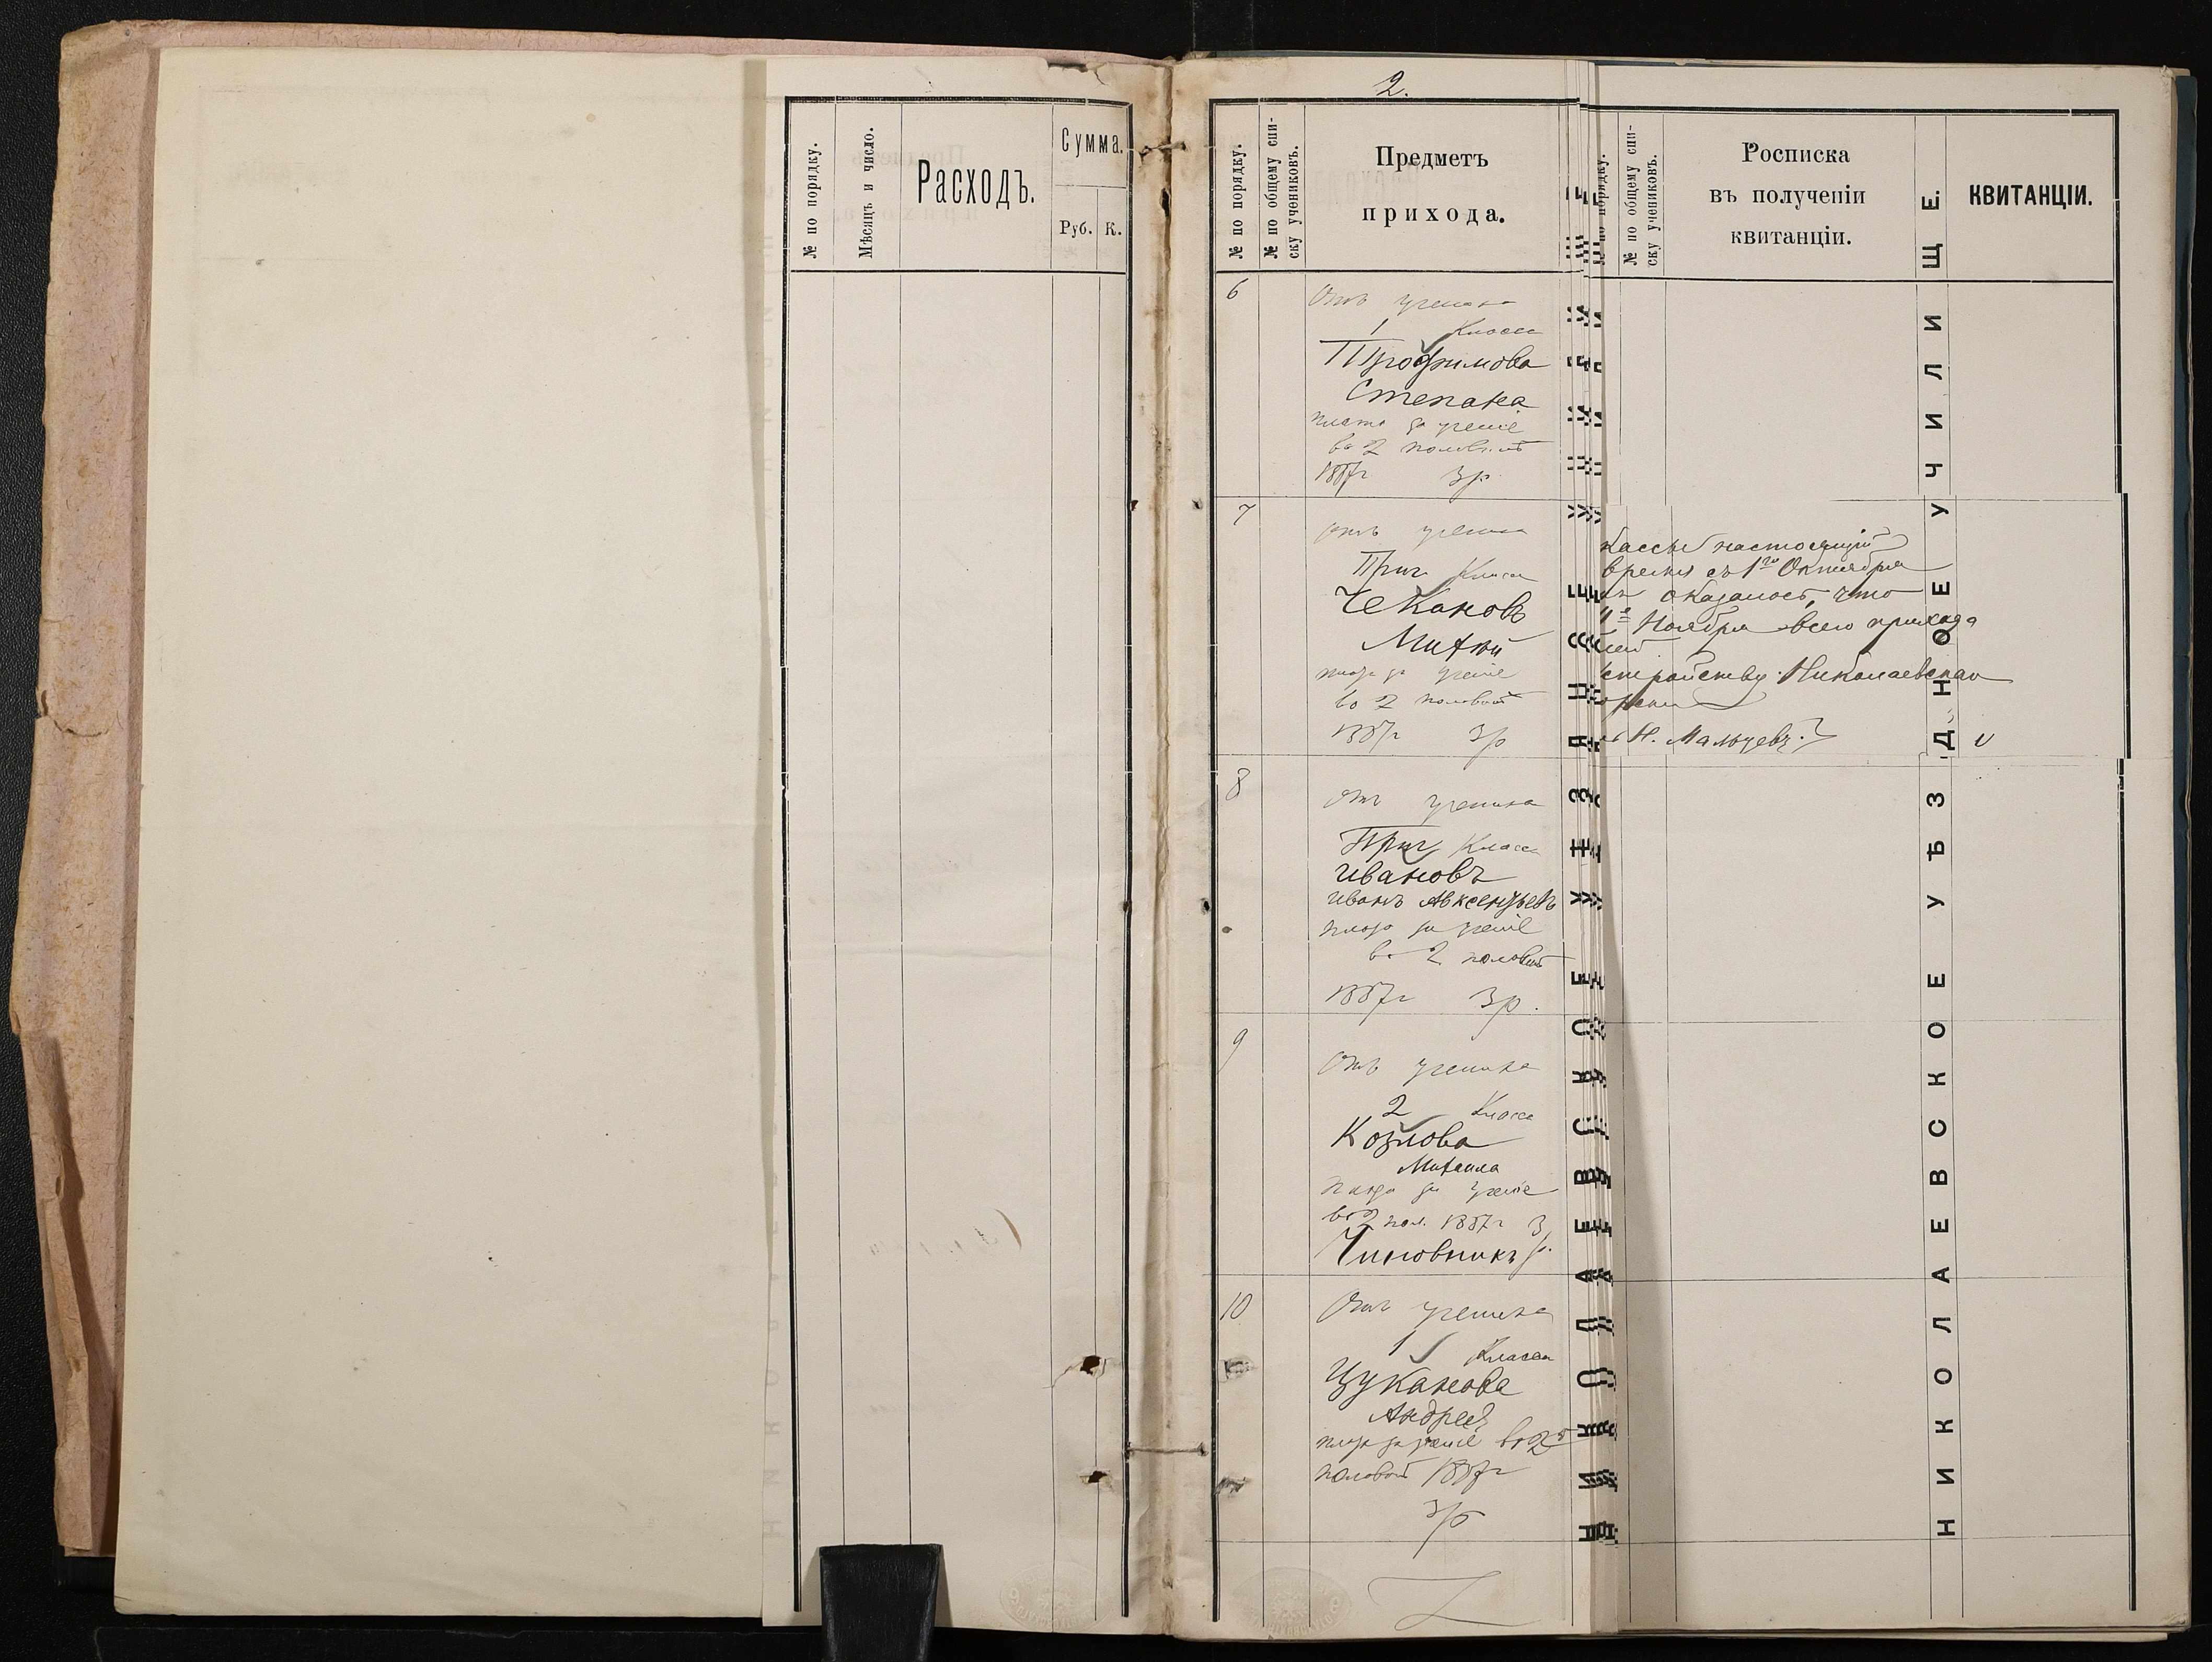 № по порядку.
Мѣсяцъ и число.
Расходъ.
Сумма.
Руб. К.
2.
№ по порядку.
№ по общему спи-
ску учениковъ.
Предметъ
прихода.
6
Отъ ученика
1 Класса
Трофимова
Степана
плата за ученіе
во 2 половинѣ
1887г 3р.
7
Отъ ученика
Приг Класса
Чекановъ
Митяй
плата за ученіе
во 2 половинѣ
1887г 3р
8
Отъ ученика
Приг Класса
Ивановъ
Иванъ Авксентьевъ
плата за ученіе
во 2 половинѣ
1887г 3р.
9
Отъ ученика
2 Класса
Козлова
Михаила
плата за ученіе
во 2 пол. 1887г 3
Чиновникъ р.
10
Отъ ученика
1 Класса
Цуканова
Андрея
плата за ученіе во 2й
половинѣ 1887г
3р
по порядку.
№ по общему спи-
ску учениковъ.
Росписка
въ полученіи
квитанціи.
НИКОЛАЕВСКОЕ УѢЗДНОЕ УЧИЛИЩЕ.
КВИТАНЦІИ.
кассы настоящій
время съ 1го Октября
оказалось, что
1е Ноября всего прихода
стройству Николаевскаго
Н. Мальцевъ.